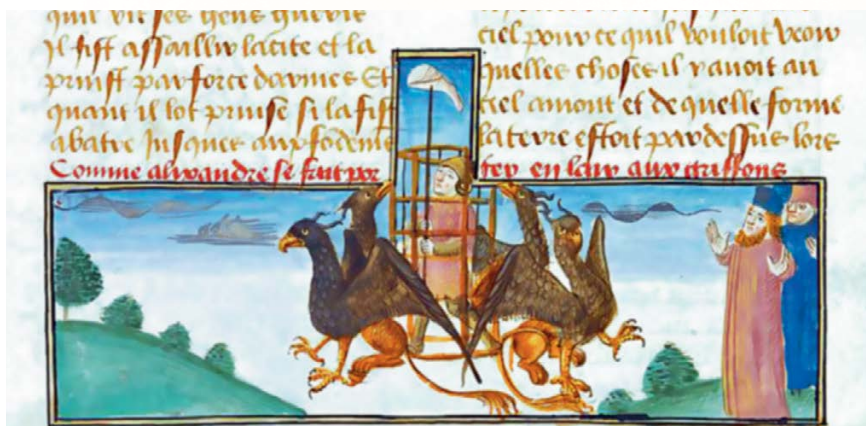 quil vit ses gens
Il fist assaillir la cite et la
prinst par force darmes Et
quant il lot prinse si la fist
abatre Jusques au fondeme
Comme alixandre se fait por
ciel pour ce quil vouloit veoir
quelles choses il y avoit au
ciel amont et de quelle forme
la terre estoit par dessus lors
ter en lair aux griffons